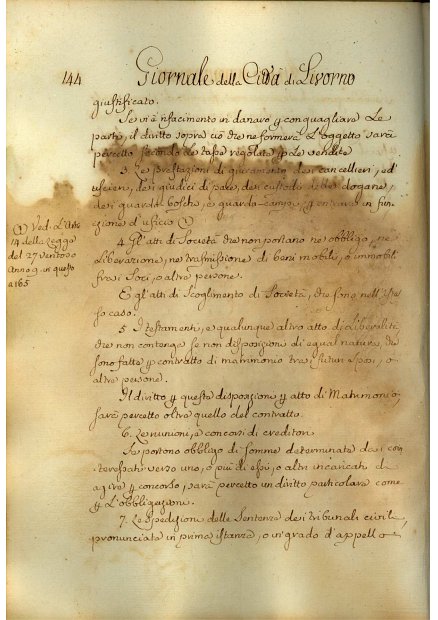 144
Giornale della Città di Livorno
giustificato.
Se vi è rifacimento in danaro p conquagliare Le
parti, il diritto sopra ciò che ne formerà L'oggetto sarà
percetto secondo le tasse regolate p le vendite
3. Le prestazioni di giuramento dei cancellieri, ed
uscieri, dei giudici di pace, dei custodi delle dogane,
dei guarda boschi, e guarda campi, p entrare in fun
zione d'ufizio (1)
(1) Ved. L'Arto
14 della Legge
del 27 ventoso
Anno 9. in questo
a 165
4. Gli atti di Società che non portano nè obbligo, nè
Liberazione, nè trasmissione di beni mobili, o immobili
fra i Soci, o altre persone.
E gli atti di Scoglimento di Società, che sono nell'istes
so caso.
5. I testamenti, e qualunque altro atto di Liberalità
che non contengo se non disposizioni di egual natura, che
sono fatte p contratto di matrimonio tra i futuri sposi, o
altre persone.
Il diritto p questa disposizione p atto di Matrimonio,
sarà percetto oltre quello del contratto.
6. Le unioni, e concorsi di creditori
Se portono obbligo di somme determinate dai con
teressati verso uno, o più di essi, o altri incaricati di
agire p concorso, sarà percetto un diritto particolare come
p L'obbligazioni.
7. Le spedizioni delle Sentenze dei tribunali civili,
pronunciate in prima istanza, o in grado d'appello